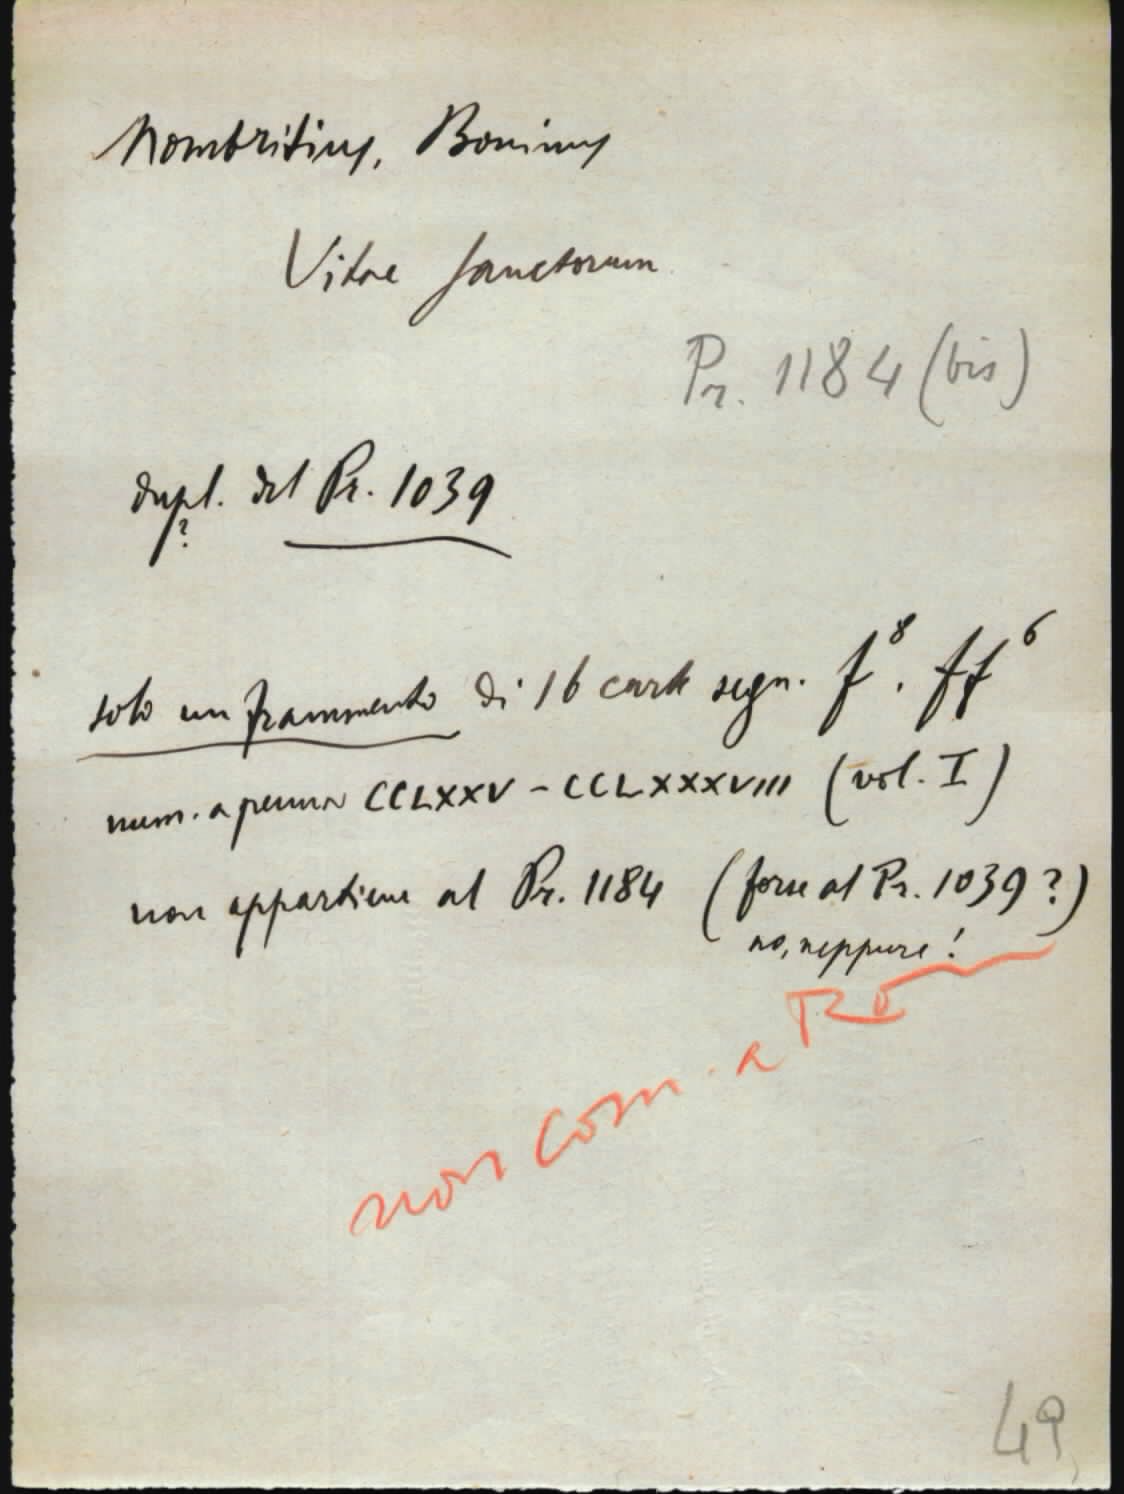 Mombritius, Boninus
Vitae Sanctorum
Pr. 1184 (bis)
dupl. del Pr. 1039
?
solo un frammento di 16 carte segn. f⁸, ff⁶
num. a penna CCLXXV - CCLXXXVIII (vol. I)
non appartiene al Pr. 1184 (forse al Pr. 1039?)
no, neppure!
non com. a Ro
49